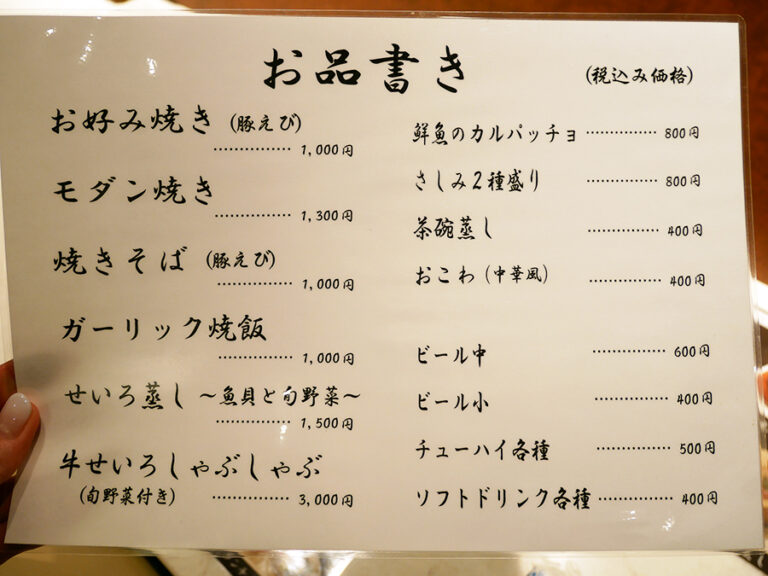 お品書き
(税込み価格)
お好み焼き (豚えび)
…………… 1,000円
モダン焼き
…………… 1,300円
焼きそば (豚えび)
…………… 1,000円
ガーリック焼飯
…………… 1,000円
せいろ蒸し ～魚貝と旬野菜～
…………… 1,500円
牛せいろしゃぶしゃぶ
(旬野菜付き) …………… 3,000円
鮮魚のカルパッチョ …………… 800円
さしみ2種盛り …………… 800円
茶碗蒸し …………… 400円
おこわ (中華風) …………… 400円
ビール中 …………… 600円
ビール小 …………… 400円
チューハイ各種 …………… 500円
ソフトドリンク各種 …………… 400円